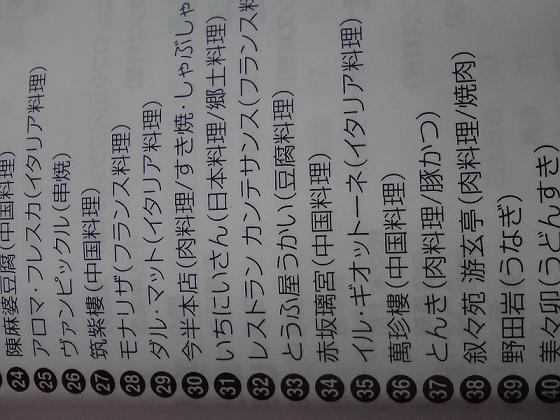 陳麻婆豆腐(中国料理)
24 アロマ・フレスカ(イタリア料理)
25 ヴァンピックル(串焼)
26 筑紫樓(中国料理)
27 モナリザ(フランス料理)
28 ダル・マット(イタリア料理)
29 今半本店(肉料理/すき焼・しゃぶしゃ
30 いちにいさん(日本料理/郷土料理)
31 レストラン カンテサンス(フランス料
32 とうふ屋うかい(豆腐料理)
33 赤坂璃宮(中国料理)
34 イル・ギオットーネ(イタリア料理)
35 萬珍樓(中国料理)
36 とんき(肉料理/豚かつ)
37 叙々苑 游玄亭(肉料理/焼肉)
38 野田岩(うなぎ)
39 美々卯(うどんすき)
40